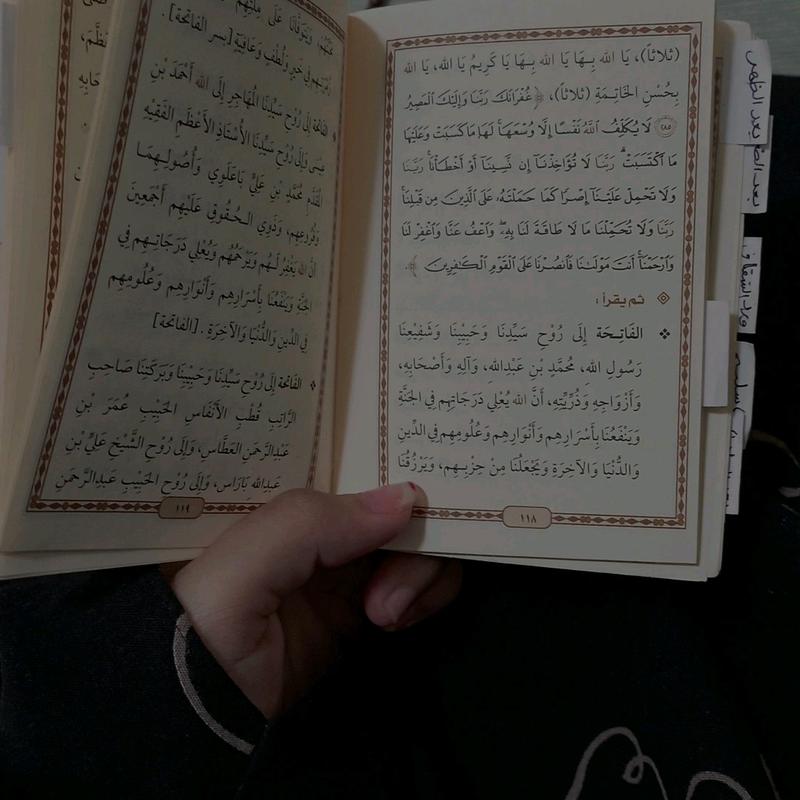 (ثلاثاً)، يَا الله بِـهَا يَا الله بِـهَا يَا كَرِيمُ يَا الله، يَا الله
بِحُسْنِ الخَاتِـمَةِ (ثلاثاً)، ﴿غُفْرَانَكَ رَبَّنَا وَإِلَيْكَ ٱلْمَصِيرُ
٢٨٥ لَا يُكَلِّفُ ٱللَّهُ نَفْسًا إِلَّا وُسْعَهَا ۚ لَهَا مَا كَسَبَتْ وَعَلَيْهَا
مَا ٱكْتَسَبَتْ ۗ رَبَّنَا لَا تُؤَاخِذْنَآ إِن نَّسِينَآ أَوْ أَخْطَأْنَا ۚ رَبَّنَا
وَلَا تَحْمِلْ عَلَيْنَآ إِصْرًا كَمَا حَمَلْتَهُۥ عَلَى ٱلَّذِينَ مِن قَبْلِنَا ۚ
رَبَّنَا وَلَا تُحَمِّلْنَا مَا لَا طَاقَةَ لَنَا بِهِۦ ۖ وَٱعْفُ عَنَّا وَٱغْفِرْ لَنَا
وَٱرْحَمْنَآ ۚ أَنتَ مَوْلَىٰنَا فَٱنصُرْنَا عَلَى ٱلْقَوْمِ ٱلْكَـٰفِرِينَ﴾.
ثم يقرأ :
الفَاتِـحَة إِلَى رُوْحِ سَيِّدِنَا وَحَبِيْبِنَا وَشَفِيْعِنَا
رَسُولِ الله، مُحَمَّدِ بْنِ عَبْدِالله، وَآلِهِ وَأَصْحَابِهِ،
وَأَزْوَاجِهِ وَذُرِّيَّتِهِ، أَنَّ الله يُعْلِي دَرَجَاتِهِم فِي الجَنَّةِ
وَيَنْفَعُنَا بِأَسْرَارِهِم وَأَنْوَارِهِم وَعُلُومِهِم فِي الدِّينِ
وَالدُّنْيَا وَالآخِرَةِ وَيَجْعَلُنَا مِنْ حِزْبِـهِم، وَيَرْزُقُنَا
١١٨
عَلَى مِلَّتِهِم
فِي خَيْرٍ وَلُطْفٍ وَعَافِيَةٍ [بسر الفاتحة].
الفَاتِحَة إِلَى رُوْحِ سَيِّدِنَا المُهَاجِرِ إِلَى الله أَحْمَدَ بْنِ
عِيسَى وَإِلَى رُوْحِ سَيِّدِنَا الأُسْتَاذِ الأَعْظَمِ الفَقِيْهِ
المُقَدَّمِ مُحَمَّدِ بْنِ عَلِيٍّ بَاعَلَوِي وَأُصُولِـهِمَا
وَفُرُوعِهِم، وَذَوِي الـحُقُوقِ عَلَيْهِم أَجْمَعِينَ
أَنَّ الله يَغْفِرُ لَهُم وَيَرْحَمُهُم وَيُعْلِي دَرَجَاتِـهِم فِي
الجَنَّةِ وَيَنْفَعُنَا بِأَسْرَارِهِم وَأَنْوَارِهِم وَعُلُومِهِم
فِي الدِّينِ وَالدُّنْيَا وَالآخِرَةِ . [الفاتحة]
الفَاتِحَة إِلَى رُوْحِ سَيِّدِنَا وَحَبِيْبِنَا وَبَرَكَتِنَا صَاحِبِ
الرَّاتِبِ قُطْبِ الأَنْفَاسِ الحَبِيْبِ عُمَرَ بْنِ
عَبْدِالرَّحمَنِ العَطَّاسِ، وَإِلَى رُوْحِ الشَّيْخِ عَلِيِّ بْنِ
عَبْدِالله بَارَاس، وَإِلَى رُوْحِ الحَبِيْبِ عَبْدِالرَّحمَنِ
١١٩
بعد الظهر
ورد السقاف